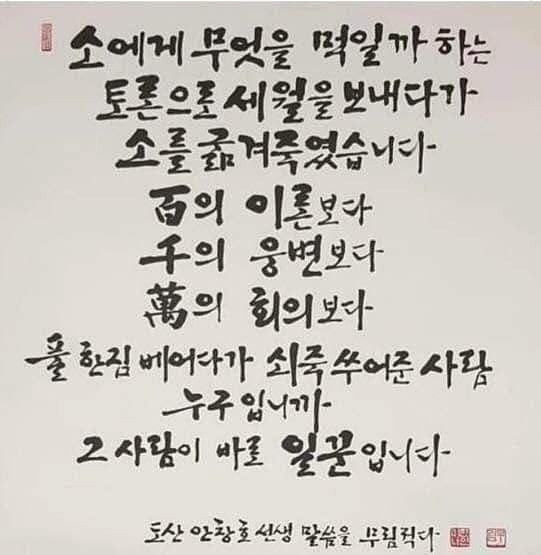 소에게 무엇을 먹일까 하는
토론으로 세월을 보내다가
소를 굶겨죽였습니다
百의 이론보다
千의 웅변보다
萬의 회의보다
풀 한짐 베어다가 쇠죽 쑤어준 사람
누구입니까
그 사람이 바로 일꾼입니다
도산 안창호 선생 말씀을 무림적다